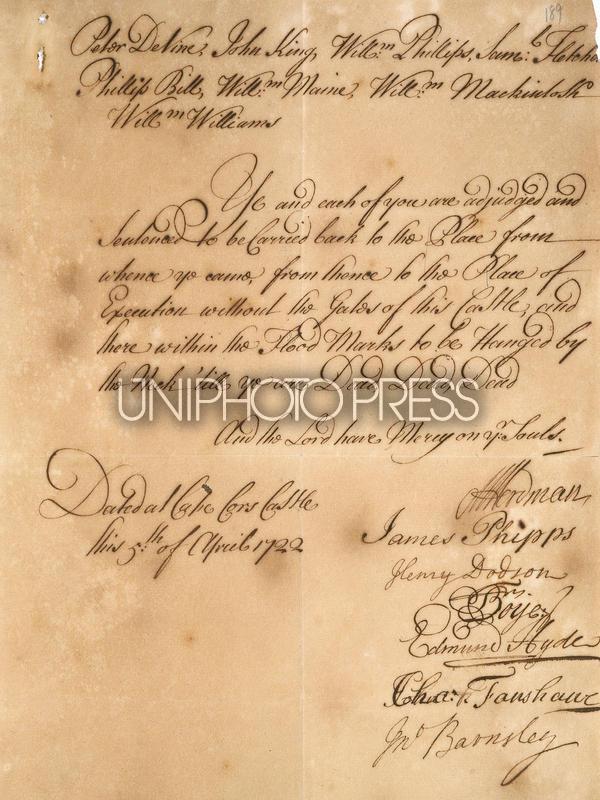 189
Peter DeVine, John King, Will:m Phillips, Sam:l Fletcher
Phillip Bill, Will:m Maine, Will:m Mackintosh
Will:m Williams
Ye and each of you are adjudged and
Sentenced to be Carried back to the Place from
whence ye came, from thence to the Place of
Execution without the Gates of this Castle, and
there within the Flood Marks to be Hanged by
the Neck till ye are Dead, Dead, Dead
UNIPHOTO PRESS
And the Lord have Mercy on yr. Souls.
Dated at Cabe Cors Castle
this 5:th of April 1722
Herdman
James Phipps
Henry Dodson
Boye
Edmund Hyde
Cha: Fanshawe
Jno Barnsley